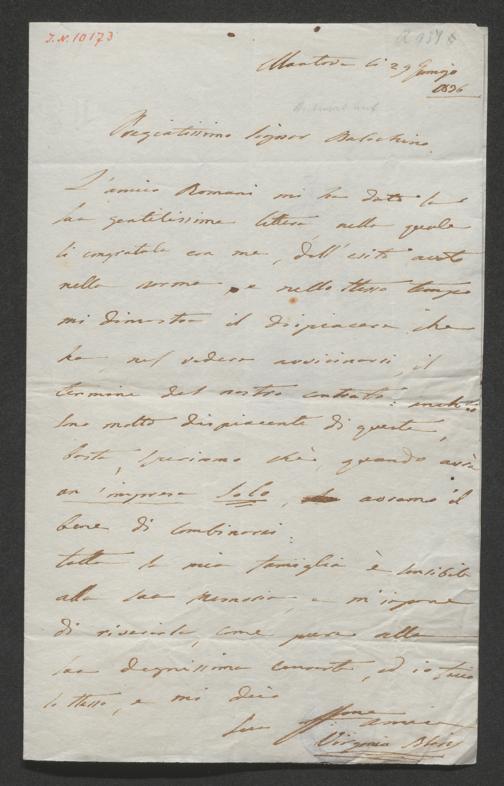 I.N. 10173
Mantova li 29 Giugno
1836
Pregiatissimo Signor Balochino
L'amico Romani mi ha dato la
sua gentilissima lettera, nella quale
si congratula con me, dell'esito avuto
nella Norma, e nello stesso tempo
mi dimostra il dispiacere che
ha, nel vedere avvicinarsi, il
termine del nostro contratto: anch'io
sono molto dispiacente di questo,
basta, speriamo chè, quando avrà
un'impresa Solo, avremo il
bene di combinarsi:
tutta la mia famiglia è sensibile
alla sua memoria e m'impone
di riverirla, come pure alla
sua degnissima consorte, ed io faccio
lo stesso, e mi dico
Sua amica
Virginia Blasis